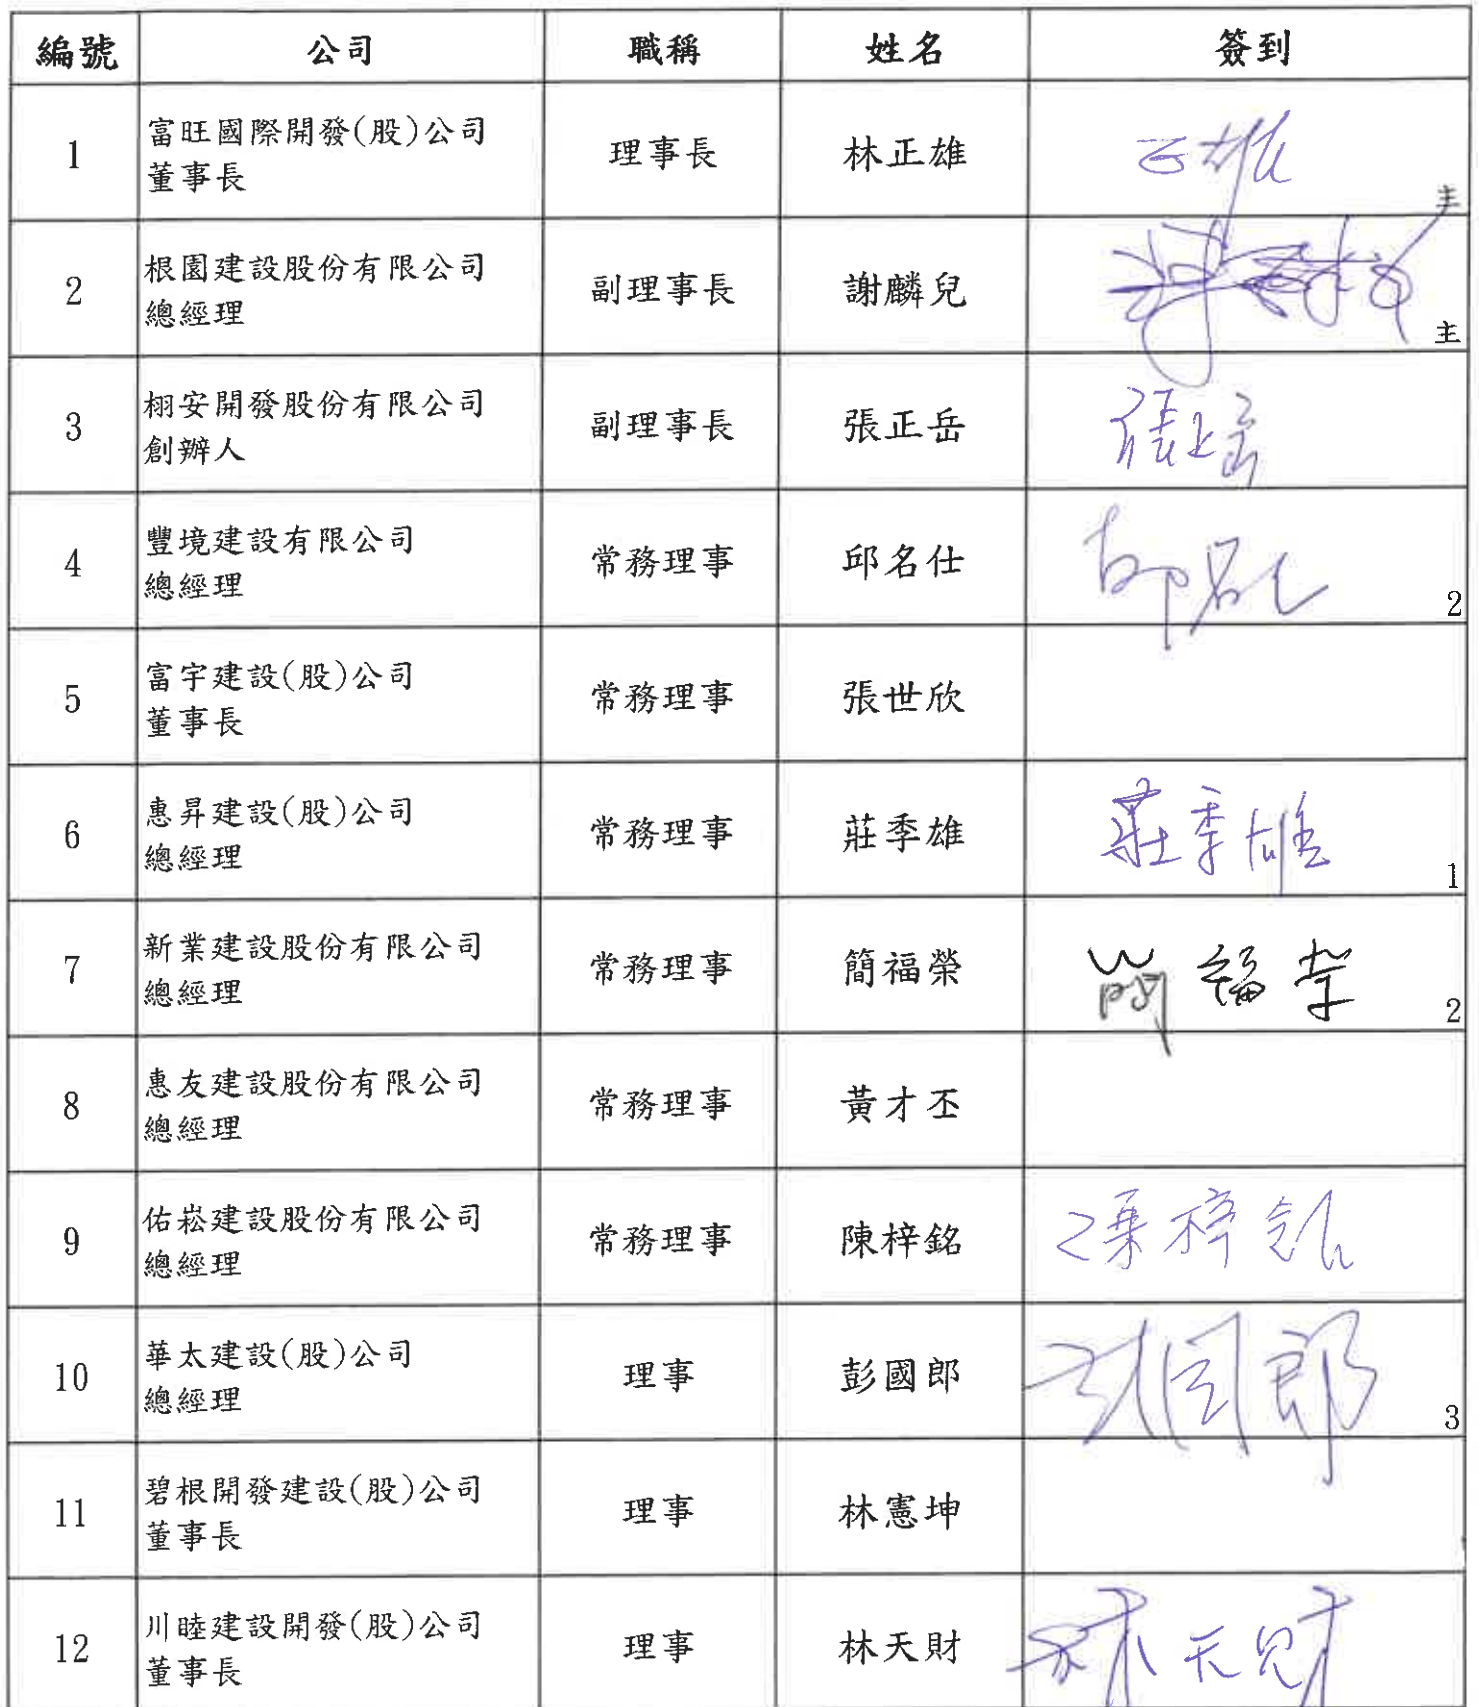 編號 公司 職稱 姓名 簽到
1 富旺國際開發(股)公司 董事長 理事長 林正雄 正雄 主
2 根園建設股份有限公司 總經理 副理事長 謝麟兒 主
3 栩安開發股份有限公司 創辦人 副理事長 張正岳 張正岳
4 豐境建設有限公司 總經理 常務理事 邱名仕 邱名仕 2
5 富宇建設(股)公司 董事長 常務理事 張世欣
6 惠昇建設(股)公司 總經理 常務理事 莊季雄 莊季雄 1
7 新業建設股份有限公司 總經理 常務理事 簡福榮 簡福榮 2
8 惠友建設股份有限公司 總經理 常務理事 黃才丕
9 佑崧建設股份有限公司 總經理 常務理事 陳梓銘 陳梓銘
10 華太建設(股)公司 總經理 理事 彭國郎 彭國郎 3
11 碧根開發建設(股)公司 董事長 理事 林憲坤
12 川睦建設開發(股)公司 董事長 理事 林天財 林天財